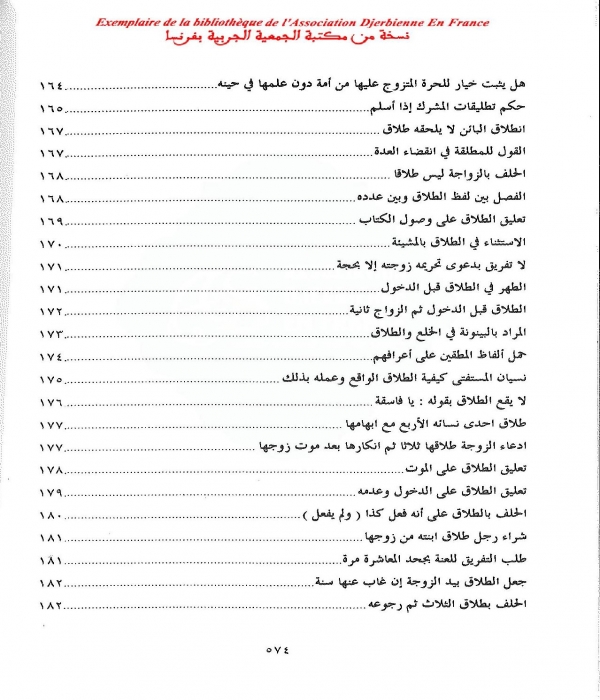 Exemplaire de la bibliothèque de l'Association Djerbienne En France
نسخة من مكتبة الجمعية الجربية بفرنسا
هل يثبت خيار للحرة المتزوج عليها من أمة دون علمها في حينه ١٦٤
حكم تطليقات المشرك إذا أسلم ١٦٥
انطلاق البائن لا يلحقه طلاق ١٦٧
القول للمطلقة في انقضاء العدة ١٦٧
الحلف بالزواجة ليس طلاقا ١٦٨
الفصل بين لفظ الطلاق وبين عدده ١٦٨
تعليق الطلاق على وصول الكتاب ١٦٩
الاستثناء في الطلاق بالمشيئة ١٧٠
لا تفريق بدعوى تحريمه زوجته إلا بحجة ١٧١
الطهر في الطلاق قبل الدخول ١٧١
الطلاق قبل الدخول ثم الزواج ثانية ١٧٢
المراد بالبينونة في الخلع والطلاق ١٧٣
حمل ألفاظ المطقين على أعرافهم ١٧٤
نسيان المستفتى كيفية الطلاق الواقع وعمله بذلك ١٧٥
لا يقع الطلاق بقوله : يا فاسقة ١٧٦
طلاق احدى نسائه الأربع مع ابهامها ١٧٧
ادعاء الزوجة طلاقها ثلاثا ثم انكارها بعد موت زوجها ١٧٧
تعليق الطلاق على الموت ١٧٨
تعليق الطلاق على الدخول وعدمه ١٧٩
الحلف بالطلاق على أنه فعل كذا ( ولم يفعل ) ١٨٠
شراء رجل طلاق ابنته من زوجها ١٨١
طلب التفريق للعنة بجحد المعاشرة مرة ١٨١
جعل الطلاق بيد الزوجة إن غاب عنها سنة ١٨٢
الحلف بطلاق الثلاث ثم رجوعه ١٨٢
٥٧٤